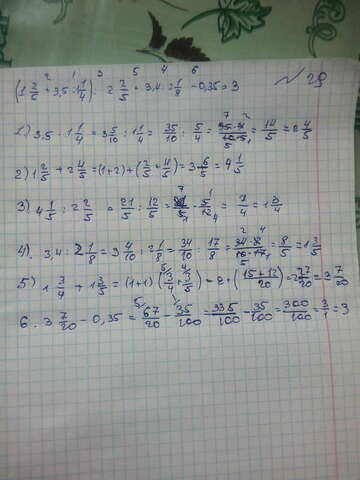 2 1 3 5 4 6
(1 2/5 + 3,5 : 1 1/4) : 2 2/5 + 3,4 : 2 1/8 - 0,35 = 3
№ 29
1) 3,5 : 1 1/4 = 3 5/10 : 1 1/4 = 35/10 : 5/4 = 35·4/10·5 = 14/5 = 2 4/5
2) 1 2/5 + 2 4/5 = (1+2) + (2/5 + 4/5) = 3 6/5 = 4 1/5
3) 4 1/5 : 2 2/5 = 21/5 : 12/5 = 21/5 · 5/12 = 7/4 = 1 3/4
4). 3,4 : 2 1/8 = 3 4/10 : 2 1/8 = 34/10 : 17/8 = 34·8/10·17 = 8/5 = 1 3/5
5) 1 3/4 + 1 3/5 = (1+1) (3/4 + 3/5) = 2 + (15+12/20) = 2 27/20 = 3 7/20
6. 3 7/20 - 0,35 = 67/20 - 35/100 = 335/100 - 35/100 = 300/100 = 3/1 = 3